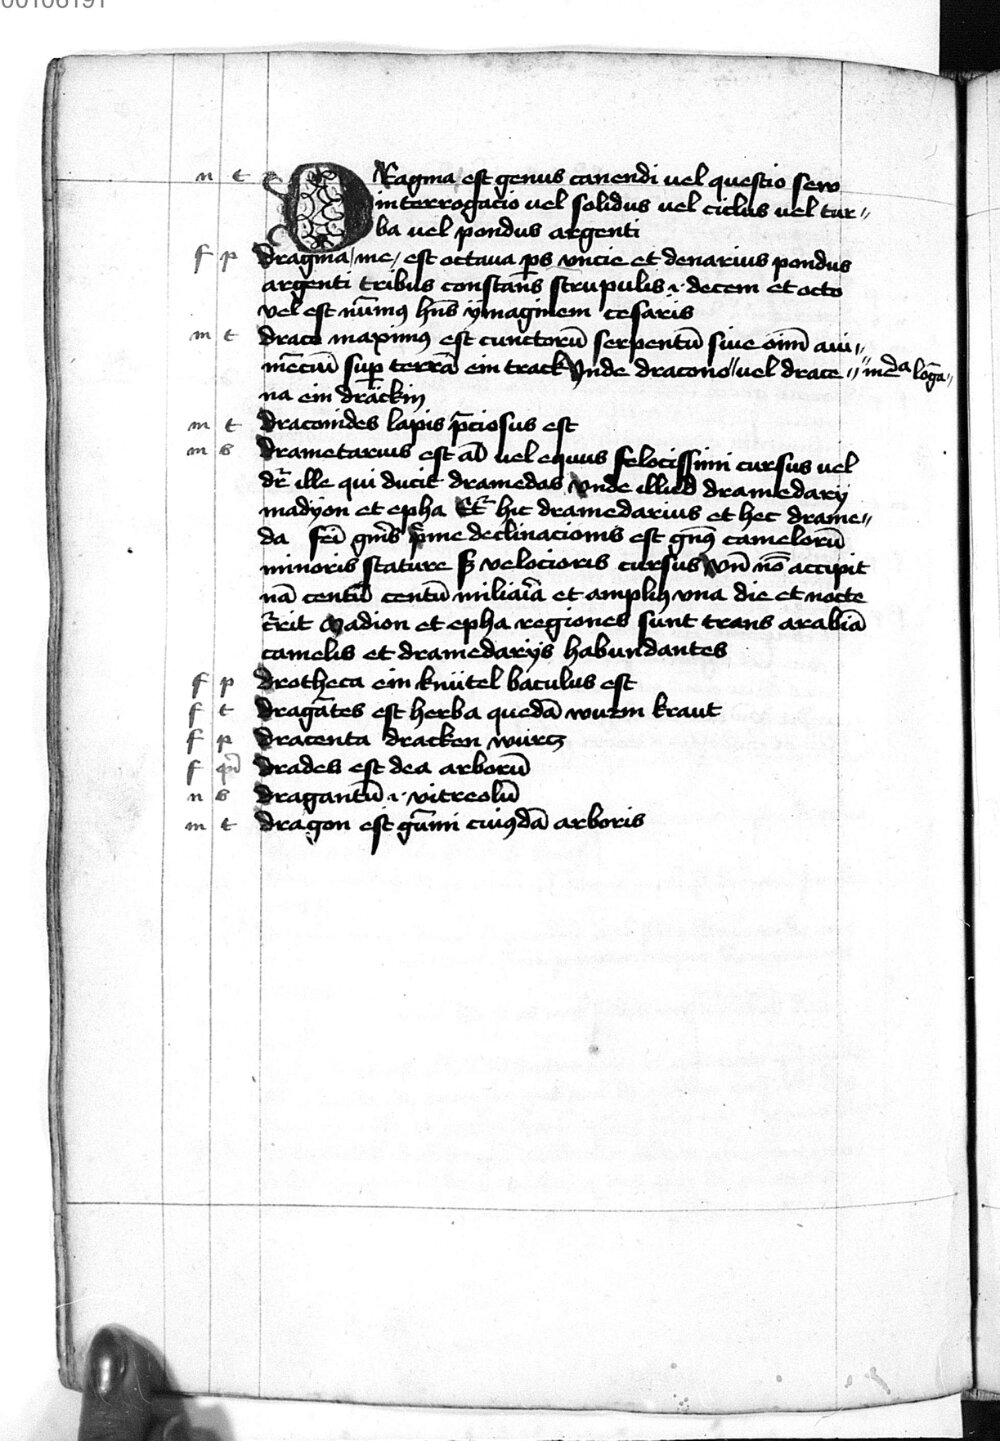 00106191
n t DRagma est genus canendi uel questio sew
interrogacio uel solidus uel ciclus uel tur〃
ba uel pondus argenti
f p dragma /me/ est octaua ꝑs vncie et denarius pondus
argenti tribus constans̄ strupulis .i. decem et octo
vel est nūmꝯ hn̄s ymaginem cesaris
m t draco maximꝯ est cunctorū serpentū siue oīm aui〃
mēciū suꝑ terrā ein track Vnde dracono〃 uel drace〃
na ein dräckin
m t draconides lapis p̄ciosus est
m b drametarius est aīl uel equus felocissimi cursus vel
dr̄ ille qui ducit dramedas vnde illud dramedarij
madyon et epha Et̄ hic dramedarius et hec drame〃
da fēi gn̄is p̄me declinacionis est gn̄ꝯ camelorū
minoris stature sꝫ velocioris cursus vn̄ nō accipit
nā centū centū miliaīa et amplꝯ vna die et nocte
t̄rit Madion et epha regiones sunt trans arabiā
camelis et dramedarijs habundantes
f p drotheca ein knüttel baculus est
f t dragātes est herba quedā wurm kraut
f p dracenta dracken würcz
f drades est dea arborū
n b dragantū .i. vitreolū
m t dragon est gūmi cuiꝯdā arboris